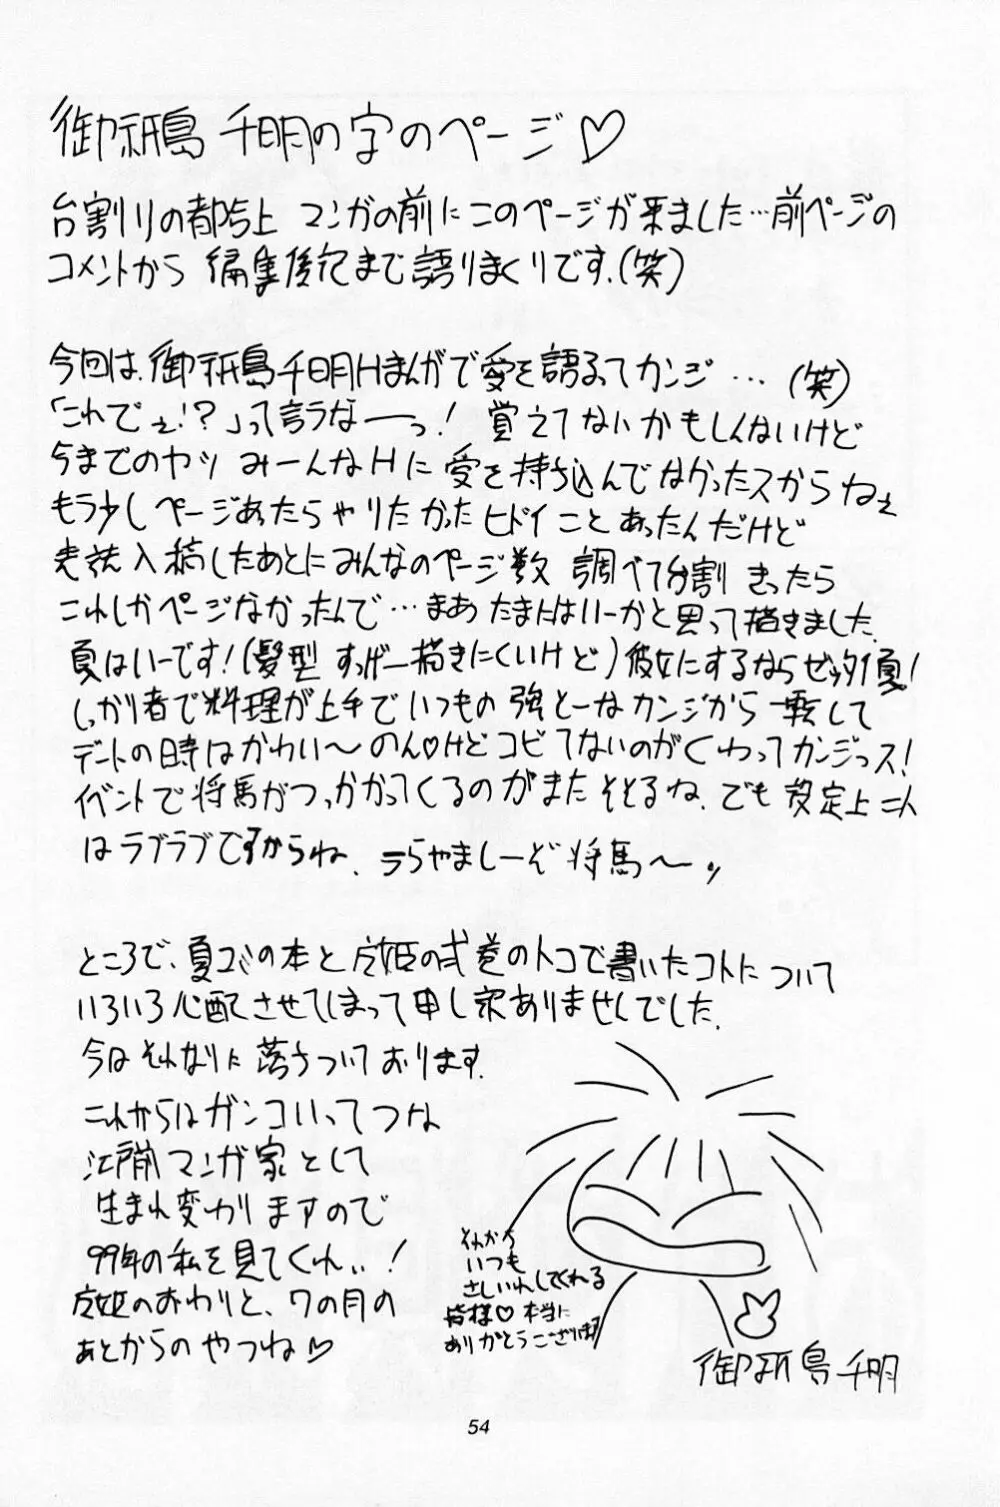 御祇島 千明の字のページ♡
台割りの都合上 マンガの前にこのページが来ました…前ページの
コメントから 編集後記まで語りまくりです.(笑)
今回は、御祇島千明Hまんがで愛を語るってカンジ…(笑)
「これでぇ!?」って言うなーっ! 覚えてないかもしんないけど
今までのヤツ みーんなHに愛を持ち込んでなかったスからねぇ
もう少しページあったらやりたかったヒドイことあったんだけど
表紙入稿したあとにみんなのページ数 調べて台割きったら
これしかページなかったんで…まあたまにはいーかと思って描きました.
夏はいーです!(髪型 すっげー描きにくいけど)彼女にするならゼッタイ夏!
しっかり者で料理が上手でいつもの 強とーなカンジから 一転して
デートの時はかわい〜のん♡けどコビてないのがくわってカンジっス!
イベントで将馬がつっかかってくるのがまたそそるね、でも設定上二人
はラブラブですからね、うらやましーぞ将馬〜ッ
ところで、夏コミの本と 姫の弐巻のトコで書いたコトについて
いろいろ心配させてしまって申し訳ありませんでした.
今はそれなりに 落ちついております.
これからはガンコいってつな
江戸前マンガ家として
生まれ変わりますので
99年の私を見てくれぃ!
姫のおわりと、7の月の
あとからのやつね♡
それから
いつも
さしいれしてくれる
皆様♡ 本当に
ありがとうございます
御祇島千明
54